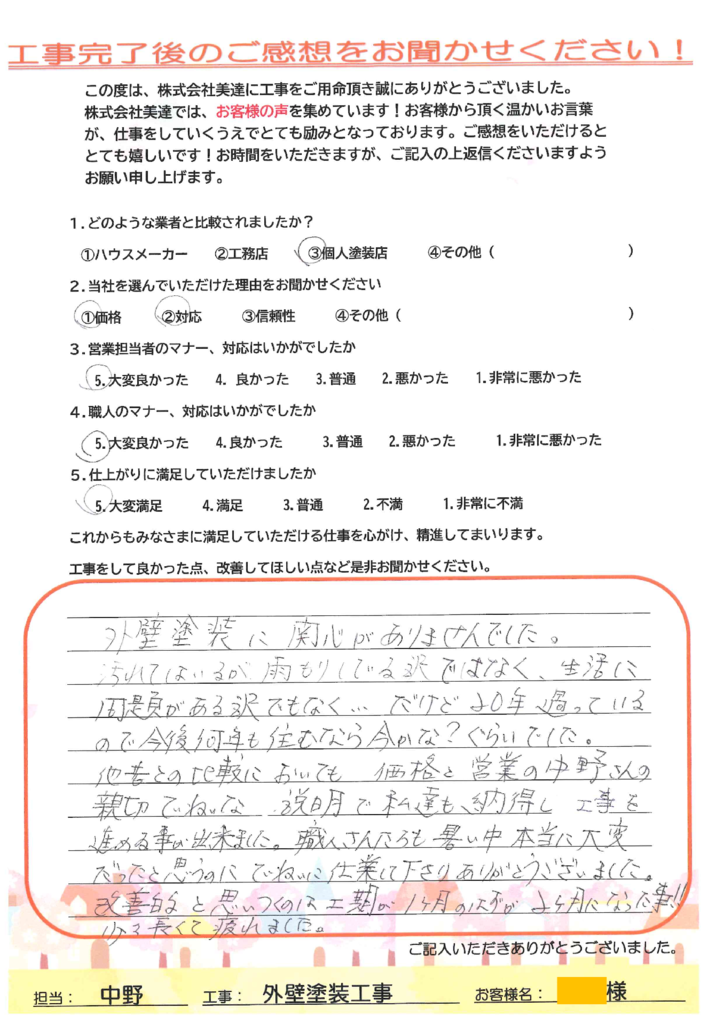 工事完了後のご感想をお聞かせください！
この度は、株式会社美達に工事をご用命頂き誠にありがとうございました。
株式会社美達では、お客様の声を集めています！お客様から頂く温かいお言葉
が、仕事をしていくうえでとても励みとなっております。ご感想をいただけると
とても嬉しいです！お時間をいただきますが、ご記入の上返信くださいますよう
お願い申し上げます。
1.どのような業者と比較されましたか？
①ハウスメーカー ②工務店 ③個人塗装店 ④その他（ ）
2.当社を選んでいただけた理由をお聞かせください
①価格 ②対応 ③信頼性 ④その他（ ）
3.営業担当者のマナー、対応はいかがでしたか
5.大変良かった 4. 良かった 3.普通 2.悪かった 1.非常に悪かった
4.職人のマナー、対応はいかがでしたか
5.大変良かった 4.良かった 3.普通 2.悪かった 1.非常に悪かった
5.仕上がりに満足していただけましたか
5.大変満足 4.満足 3.普通 2.不満 1.非常に不満
これからもみなさまに満足していただける仕事を心がけ、精進してまいります。
工事をして良かった点、改善してほしい点など是非お聞かせください。
外壁塗装に関心がありませんでした。
汚れてはいるが雨もりしている訳ではなく、生活に
問題がある訳でもなく… だけど20年過っている
ので今後何年も住むなら今かな？ぐらいでした。
他者との比較においても 価格と営業の中野さんの
親切でねいな 説明で私達も納得し 工事を
進める事が出来ました。職人さんたちも暑い中本当に大変
だったと思うのに でねいに仕業して下さりありがとうございました。
改善的なと思いつくのは工期が1ヶ月のはずが2ヶ月になった事!!
少々長くて疲れました。
ご記入いただきありがとうございました。
担当： 中野 工事： 外壁塗装工事 お客様名： 様